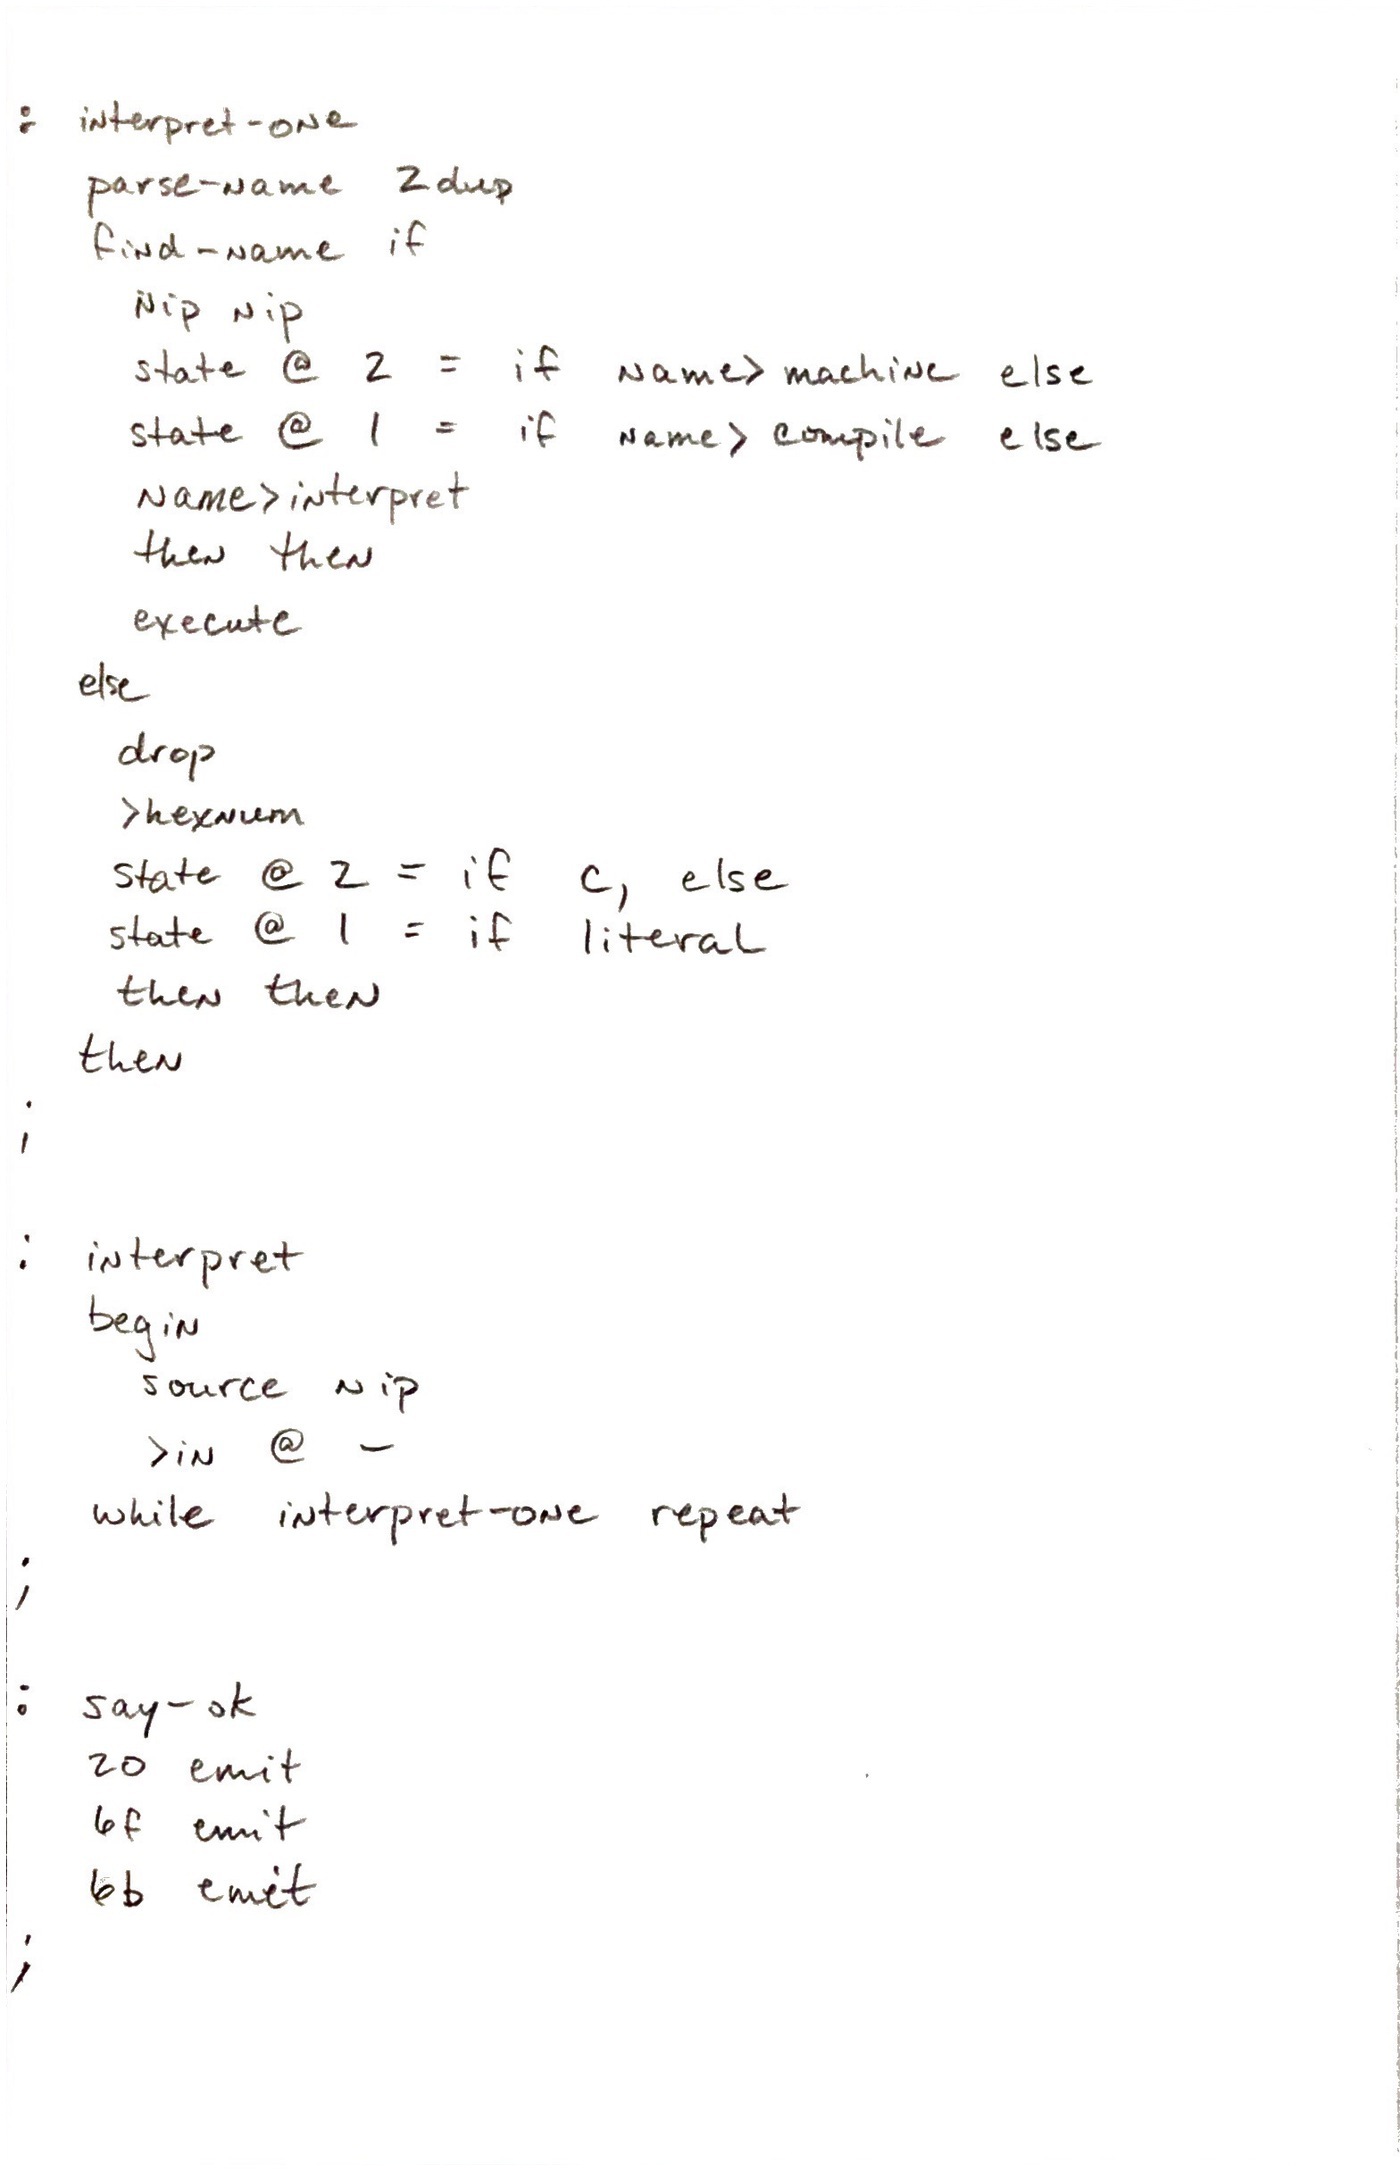 : interpret-one
parse-name 2dup
find-name if
nip nip
state @ 2 = if name>machine else
state @ 1 = if name>compile else
name>interpret
then then
execute
else
drop
>hexnum
state @ 2 = if c, else
state @ 1 = if literal
then then
then
;
: interpret
begin
source nip
>in @ -
while interpret-one repeat
;
: say-ok
20 emit
6f emit
6b emit
;